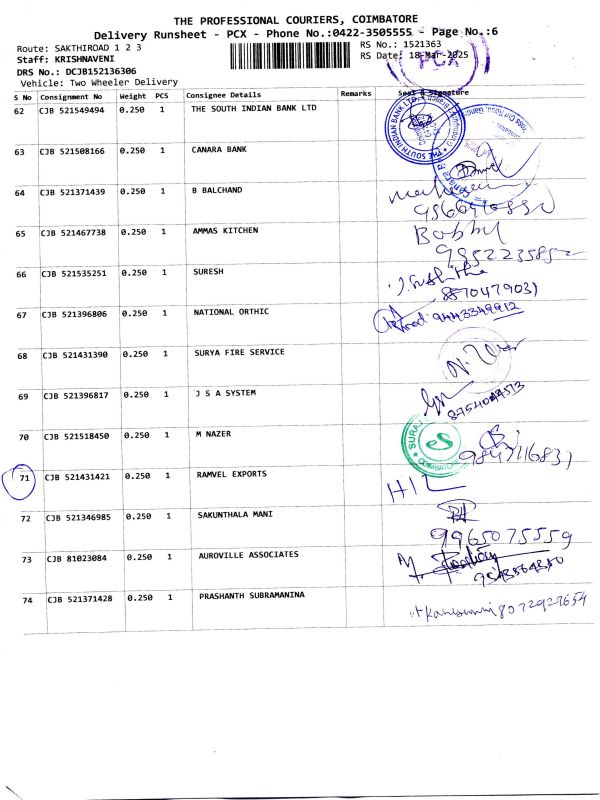 THE PROFESSIONAL COURIERS, COIMBATORE
Delivery Runsheet - PCX - Phone No.:0422-3505555 - Page No.:6
Route: SAKTHIROAD 1 2 3
RS No.: 1521363
Staff: KRISHNAVENI
RS Date: 18-Mar-2025
PCX
DRS No.: DCJB152136306
Vehicle: Two Wheeler Delivery
S No Consignment No Weight PCS Consignee Details Remarks Seal & Signature
62 CJB 521549494 0.250 1 THE SOUTH INDIAN BANK LTD
THE SOUTH INDIAN BANK LTD
63 CJB 521508166 0.250 1 CANARA BANK
64 CJB 521371439 0.250 1 B BALCHAND
65 CJB 521467738 0.250 1 AMMAS KITCHEN
66 CJB 521535251 0.250 1 SURESH
67 CJB 521396806 0.250 1 NATIONAL ORTHIC
9443349912
68 CJB 521431390 0.250 1 SURYA FIRE SERVICE
69 CJB 521396817 0.250 1 J S A SYSTEM
70 CJB 521518450 0.250 1 M NAZER
COIMBATORE
71 CJB 521431421 0.250 1 RAMVEL EXPORTS
72 CJB 521346985 0.250 1 SAKUNTHALA MANI
9965075559
73 CJB 81023084 0.250 1 AUROVILLE ASSOCIATES
74 CJB 521371428 0.250 1 PRASHANTH SUBRAMANINA